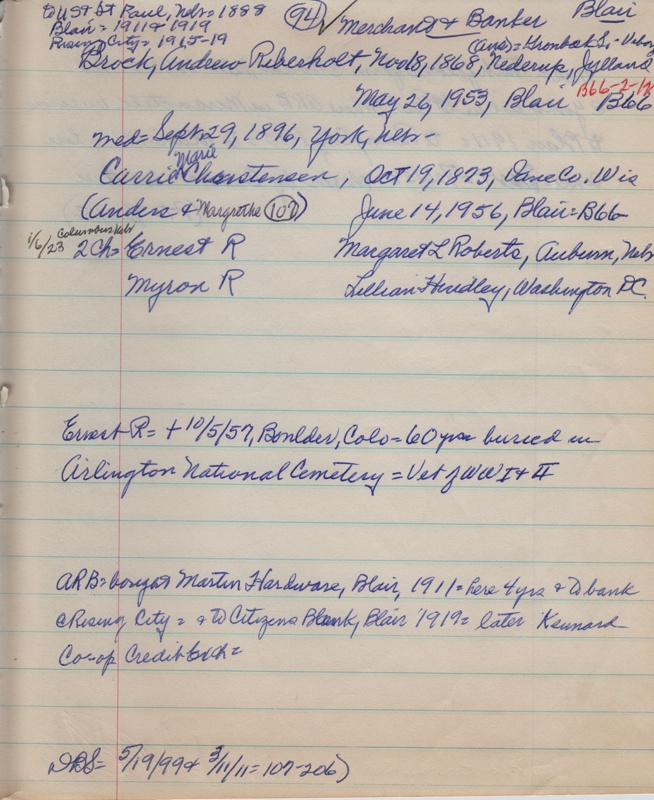 to US & St Paul, Nebr = 1888
Blair = 1911 & 1919
Rising City = 1915-19
94 ✓ Merchant & Banker Blair
Brock, Andrew Riberholt, Nov 8, 1868, Nederup, Jylland
May 26, 1953, Blair B66
B66-2-12
med = Sept 29, 1896, York, Nebr -
Carrie Marie Christensen, Oct 19, 1873, Dane Co. Wis
(Anders & Margrethe 107) June 14, 1956, Blair = B66
1/6/23 Columbus Nebr
2 Ch = Ernest R Margaret L Roberts, Auburn, Nebr
Myron R Lillian Hindley, Washington DC.
Ernest R = + 10/5/57, Boulder, Colo = 60 yrs buried in
Arlington National Cemetery = Vet of WW I & II
ARB = bought Martin Hardware, Blair, 1911 = here 4 yrs & to bank
@ Rising City = & to Citizens Bank, Blair 1919 = later Kennard
Co-op Credit =
DBS = 5/19/99 & 3/11/11 = 107-206)